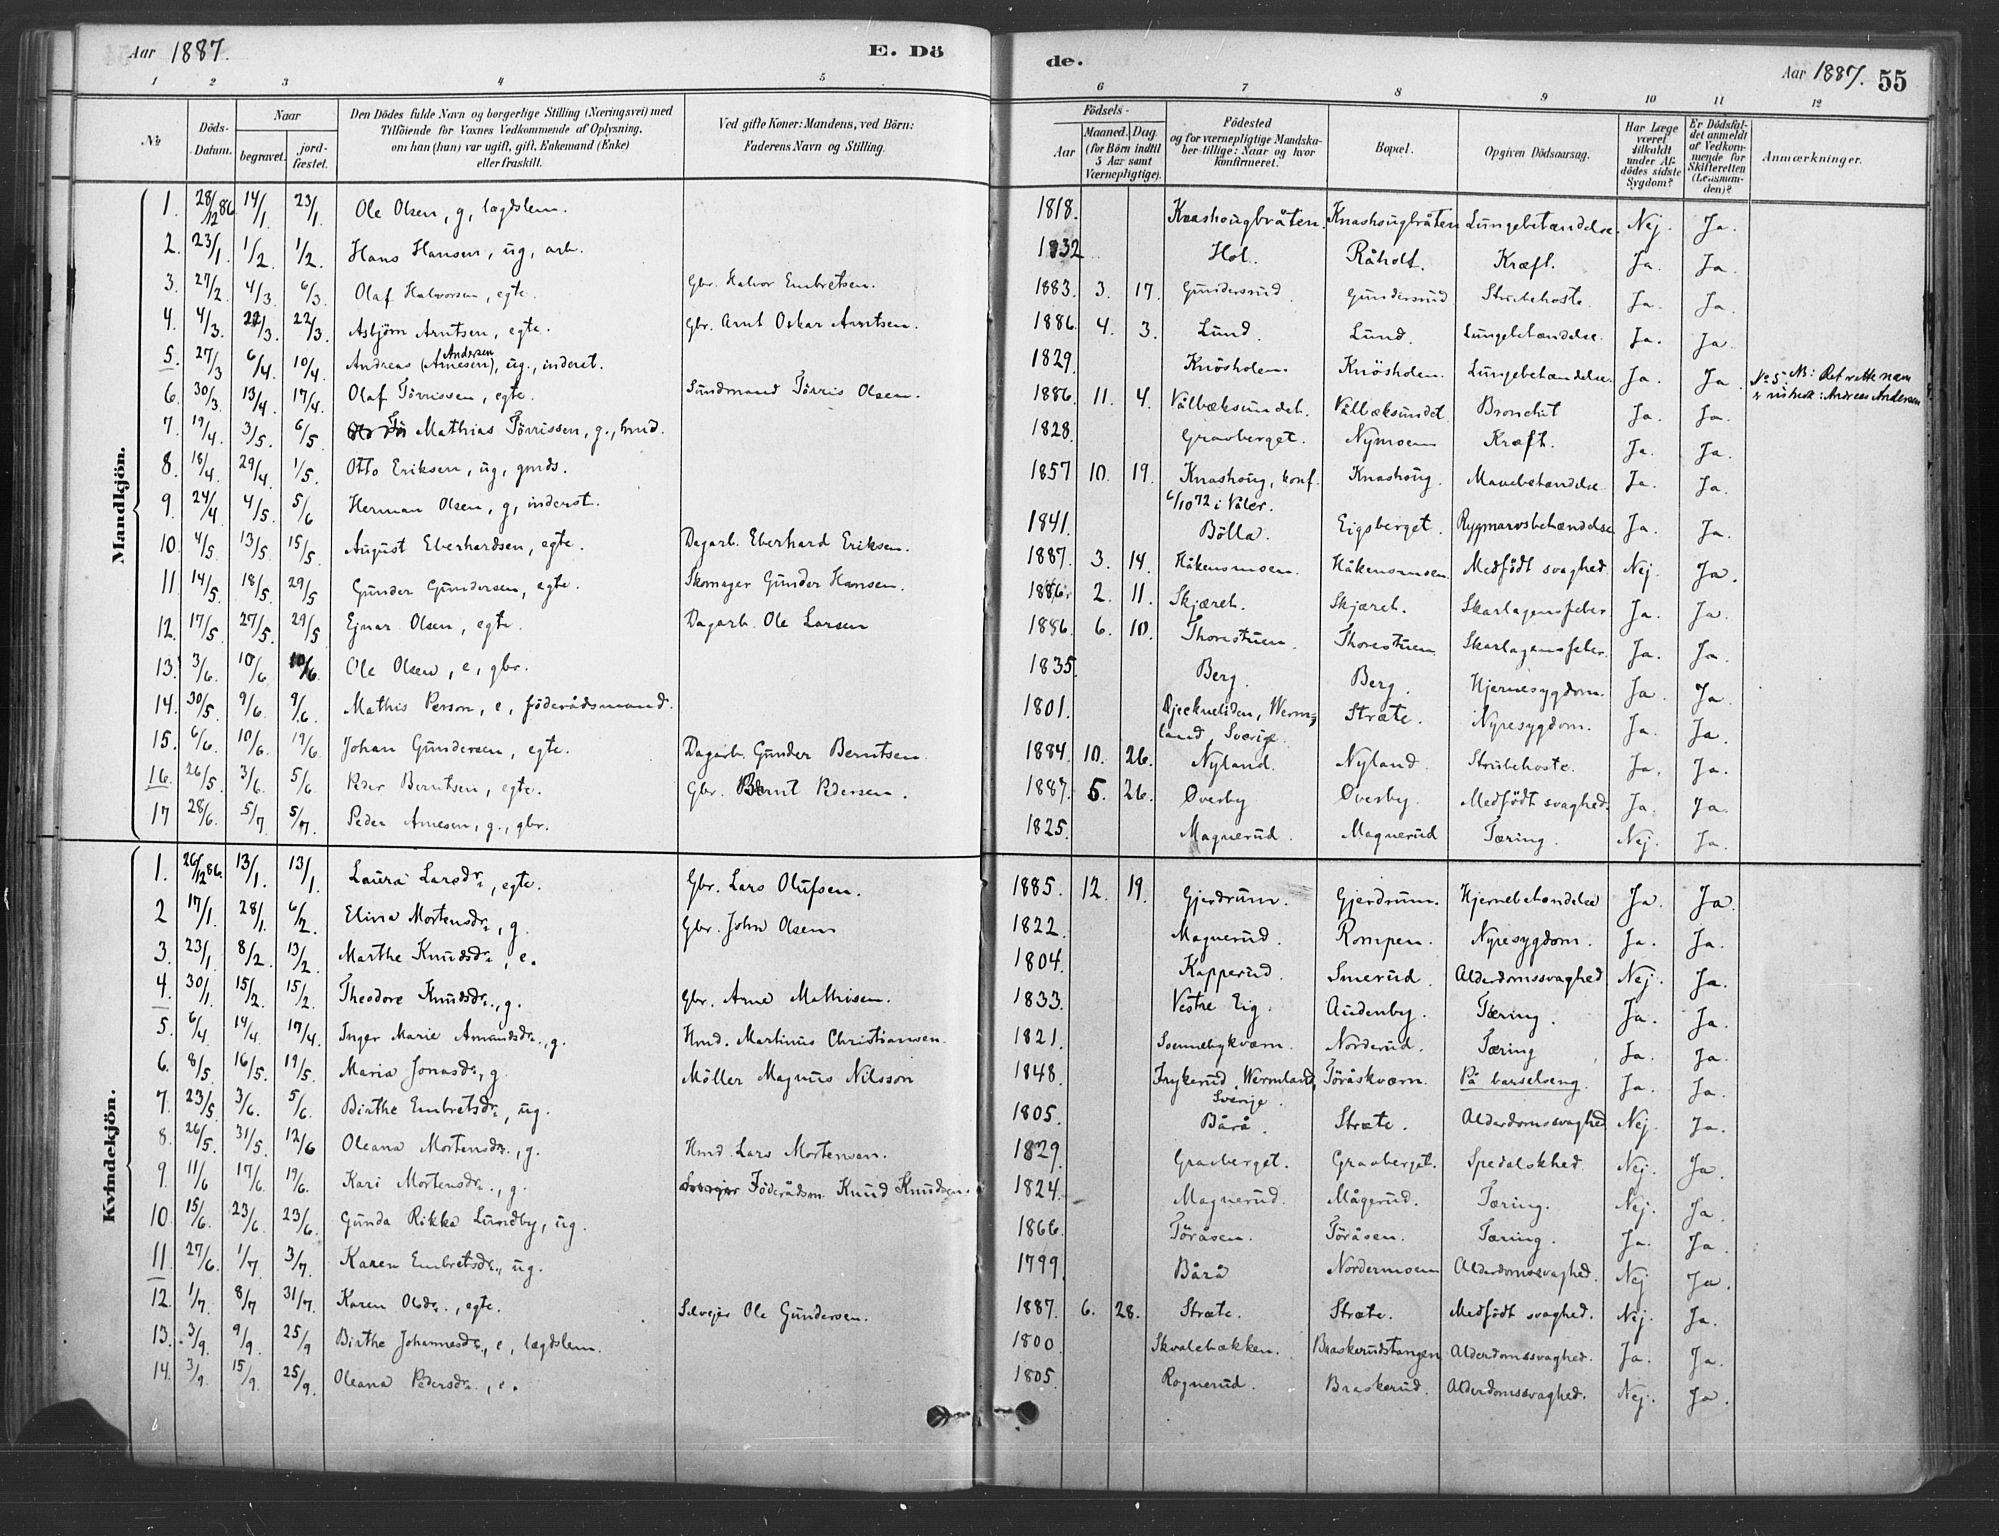 Aar 1887. E. Dö de. Aar 1887. 55
1 2 3 4 5 6 7 8 9 10 11 12
No Döds-Datum. Naar begravet. jord-fæstet. Den Dödes fulde Navn og borgerlige Stilling (Næringsvei) med Tilföiende for Voxnes Vedkommende af Oplysning, om han (hun) var ugift, gift, Enkemand (Enke) eller fraskilt. Ved gifte Koner: Mandens, ved Börn: Faderens Navn og Stilling. Födsels- Aar Maaned. Dag. (for Börn indtil 5 Aar samt Værnepligtige). Födested og for værnepligtige Mandskaber tillige: Naar og hvor konfirmeret. Bopæl. Opgiven Dödsaarsag. Har Læge været tilkaldt under Afdödes sidste Sygdom? Er Dödsfaldet anmeldt af Vedkommende for Skifteretten (Lensmanden)? Anmærkninger.
Mandkjön.
1. 28/12 86. 14/1. 23/1. Ole Olsen, g, lægdslem. 1818. Knashougbråten. Knashougbråten Lungebetændelse. Nej. Ja.
2. 23/1. 1/2. 1/2. Hans Hansen, ug, arb. 1832 Hol. Råholt. Kræft. Ja. Ja.
3. 27/2. 4/3. 6/3. Olaf Halvorsen, egte. Gbr. Halvor Embretsen. 1883. 3. 17. Gundersrud. Gundersrud Strubehoste. Ja. Ja.
4. 4/3. 22/3. 22/3. Asbjörn Arntsen, egte. Gbr. Arnt Oskar Arntsen. 1886. 4. 3. Lund. Lund. Lungebetændelse. Ja. Ja.
5. 27/3 6/4. 10/4. Andreas (Arnesen) Andersen, ug., inderst. 1829. Knösholen. Knösholen. Lungebetændelse. Ja. Ja. No 5 NB: Det rette navn
6. 30/3. 13/4. 17/4. Olaf Törrissen, egte. Sundmand Törris Olsen. 1886. 11. 4. Vålbæksundet. Vålbæksundet Bronchit Ja. Ja. : Andreas Andersen
7. 19/4. 3/5. 6/5. Mathias Törrissen, g., hmd. 1828. Gravberget. Nymoen Kræft. Ja. Ja.
8. 18/4. 29/4. 1/5. Otto Eriksen, ug, gmds. 1857 10. 19. Knashoug, konf. Knashoug. Mavebetændelse. Ja. Ja.
6/10 72 i Våler.
9. 24/4. 4/5. 5/6 Herman Olsen, g, inderst. 1841. Bölla. Eigsberget. Rygmarvsbetændelse Ja. Ja.
10. 4/5. 13/5. 15/5. August Eberhardsen, egte. Dagarb. Eberhard Eriksen. 1887. 3. 14. Håkensmoen. Håkensmoen. Medfödt svaghed. Nej. Ja.
11 14/5. 18/5. 29/5 Gunder Gundersen, egte. Skomager Gunder Hansen. 1886. 2. 11. Skjæret. Skjæret. Skarlagensfeber Ja. Ja.
12. 17/5. 27/5. 29/5 Ejnar Olsen, egte. Dagarb. Ole Larsen 1886. 6. 10. Thorestuen Thorestuen. Skarlagensfeber. Ja. Ja.
13. 3/6. 10/6 10/6. Ole Olsen, e, gbr. 1835. Berg. Berg. Hjernesygdom. Ja. Ja.
14. 30/5. 9/6. 9/6. Mathis Person, e, föderådsmand. 1801. , Werm- Stræte. Nyresygdom. Ja. Ja.
land, Sverige.
15. 6/6. 10/6. 19/6. Johan Gundersen, egte. Dagarb. Gunder Berntsen. 1884. 10. 26. Nyland. Nyland. Strubehoste. Ja. Ja.
16. 26/5. 3/6. 5/6 Peder Berntsen, egte. Gbr. Bernt Pedersen. 1887. 5. 26. Øverby Øverby. Medfödt svaghed. Ja. Ja.
17 28/6. 5/7. 5/7. Peder Arnesen, g., gbr. 1825. Magnerud. Magnerud Tæring. Nej. Ja.
Kvindekjön.
1. 26/12 86. 13/1. 13/1. Laura Larsdr., egte. Gbr. Lars Olufsen. 1885. 12. 19. Gjerdrum. Gjerdrum. Hjernebetændelse Ja. Ja.
2 17/1. 28/1. 6/2. Elina Mortensdr., g. Gbr. John Olsen 1822. Magnerud. Rompen. Nyresygdom. Ja. Ja.
3. 23/1. 8/2. 13/2. Marthe Knudsdr., e. 1804. Kapperud. Smerud. Alderdomssvaghed Nej. Ja.
4. 30/1. 15/2. 15/2. Theodore Knudsdr., g. Gbr. Arne Mathisen. 1833. Vestre Eig. Audenby. Tæring. Ja. Ja.
5. 6/4. 14/4. 17/4. Inger Marie Amundsdr., g. Hmd. Martinus Christiansen. 1821. Soennebykværn. Norderud. Tæring Ja. Ja.
6. 8/5. 16/5. 19/5. Maria Jonasdr, g. Möller Magnus Nilsson 1848. Frykerud, Wermland, Töråskværn. På barselseng. Ja. Ja.
Sverige.
7. 23/5. 3/6. 5/6. Birthe Embretsdr., ug. 1805. Bårå. Stræte. Alderdomssvaghed Nej. Ja.
8. 26/5. 31/5. 12/6 Oleana Mortensdr., g. Hmd. Lars Mortensen. 1829. Gravberget. Gravberget. Spedalskhed. Nej. Ja.
9. 11/6 17/6. 19/6. Kari Mortensdr., g. Föderådsm. Knud Knudsen. 1824. Magnerud. Mågerud. Tæring. Nej. Ja.
10. 15/6. 23/6. 23/6. Gunda Rikka Lundby, ug. 1866. Töråsen. Töråsen. Tæring. Ja. Ja.
11. 27/6. 1/7 3/7. Karen Embretsdr., ug. 1799. Bårå Nordermoen Alderdomssvaghed. Nej Ja.
12. 1/7. 8/7 31/7. Karen Olsdr., egte. Selvejer Ole Gundersen. 1887. 6. 28. Stræte. Stræte. Medfödt svaghed. Nej. Ja.
13. 3/9. 9/9. 25/9 Birthe Johannesdr., e, lægdslem. 1800. Skvalebækken. Braskerudstangen Alderdomssvaghed. Ja. Ja.
14. 3/9. 15/9. 25/9. Oleana Pedersdr., e. 1805. Rognerud. Braskerud. Alderdomssvaghed. Nej. Ja.